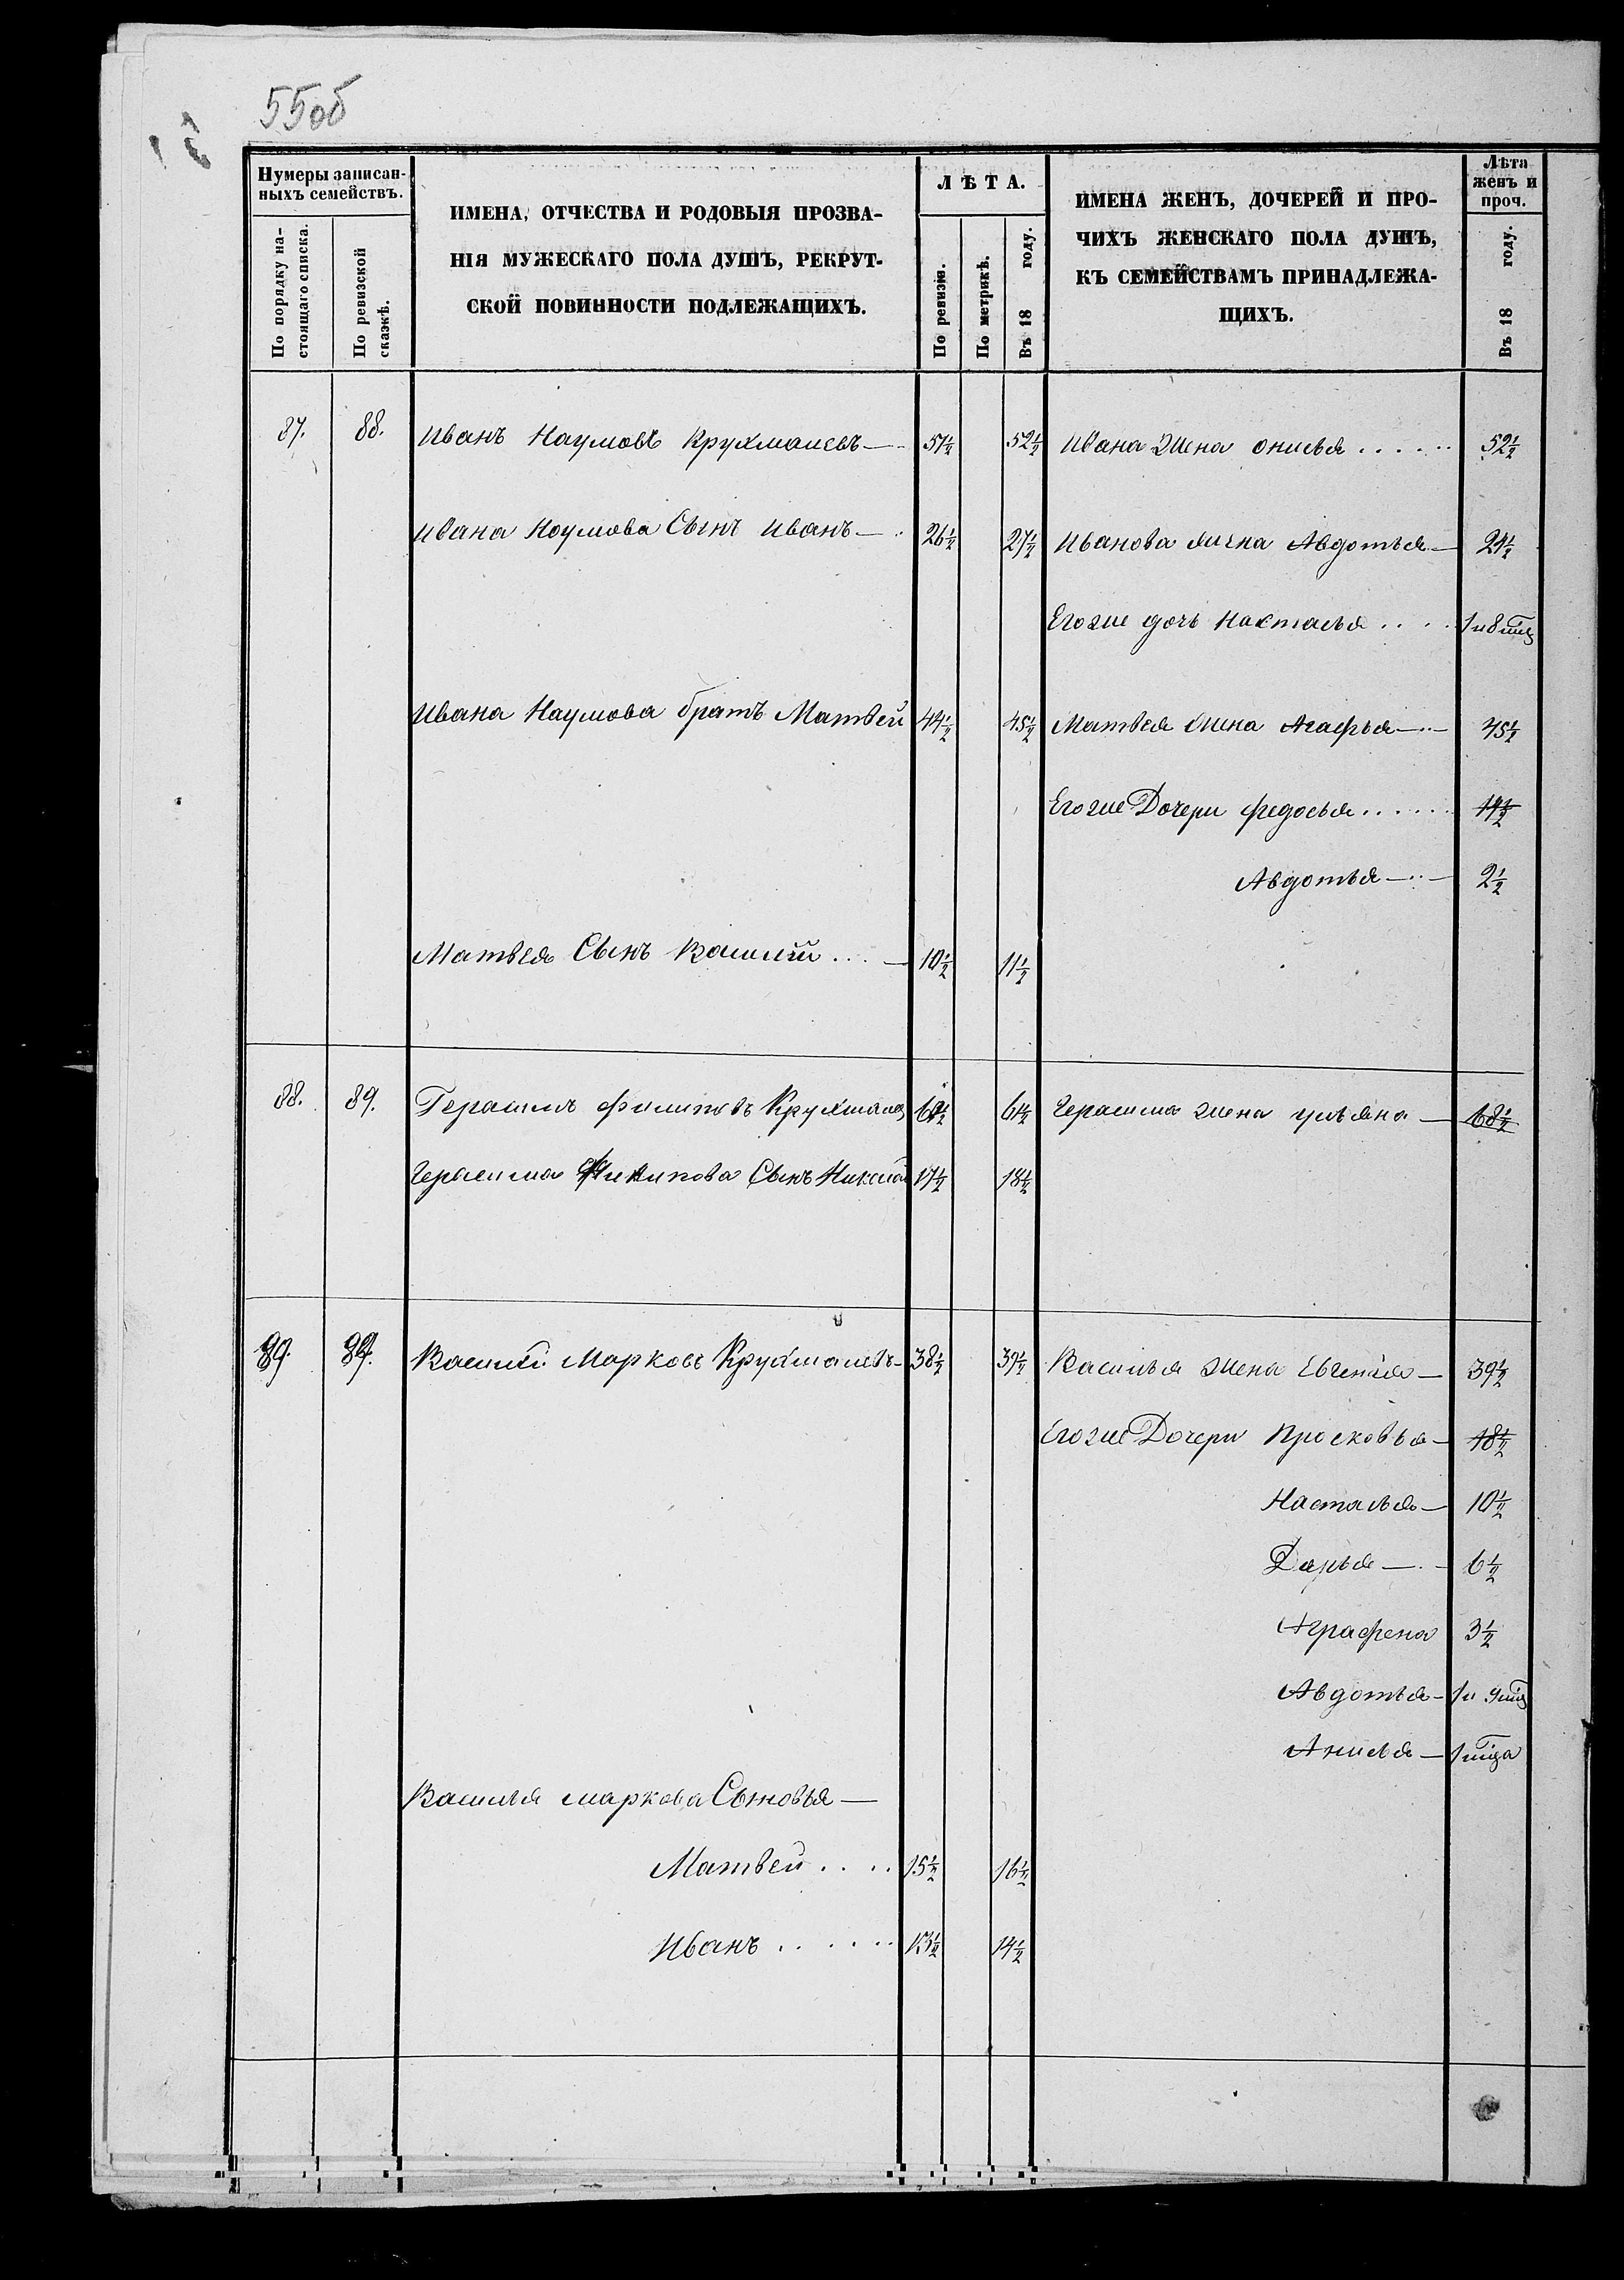 55об
Нумеры записан-
ныхъ семействъ.
По порядку на-
стоящаго списка.
По ревизской
сказкѣ.
ИМЕНА, ОТЧЕСТВА И РОДОВЫЯ ПРОЗВА-
НІЯ МУЖЕСКАГО ПОЛА ДУШЪ, РЕКРУТ-
СКОЙ ПОВИННОСТИ ПОДЛЕЖАЩИХЪ.
ЛѢТА.
По ревизіи.
По метрикѣ.
Въ 18 году.
ИМЕНА ЖЕНЪ, ДОЧЕРЕЙ И ПРО-
ЧИХЪ ЖЕНСКАГО ПОЛА ДУШЪ,
КЪ СЕМЕЙСТВАМЪ ПРИНАДЛЕЖА-
ЩИХЪ.
Лѣта
женъ и
проч.
Въ 18 году.
87. 88. Иванъ Наумовъ 51½ 52½ Ивана жена Онисья 52½
Ивана Наумова Сынъ Иванъ 26½ 27½ Иванова жена Авдотья 24½
Егоже дочь Наталья 1 и 8
Ивана Наумова братъ Матвей 44½ 45½ Матвея жена Агафья 45½
Егоже Дочери Федосья 19½
Авдотья 2½
Матвея Сынъ Василий 10½ 11½
88. 89. Герасимъ Филиповъ 61½ Герасима жена Ульяна 68½
Герасима Филипова Сынъ 17½ 18½
89. Василий Марковъ 38½ 39½ Василья жена Евгения 39½
Егоже Дочери Просковья 18½
Наталья 10½
Дарья 6½
Аграфена 3½
Авдотья 1 и 9
Анисья 1
Василья Маркова Сыновья
Матвей 15½ 16½
Иванъ 13½ 14½